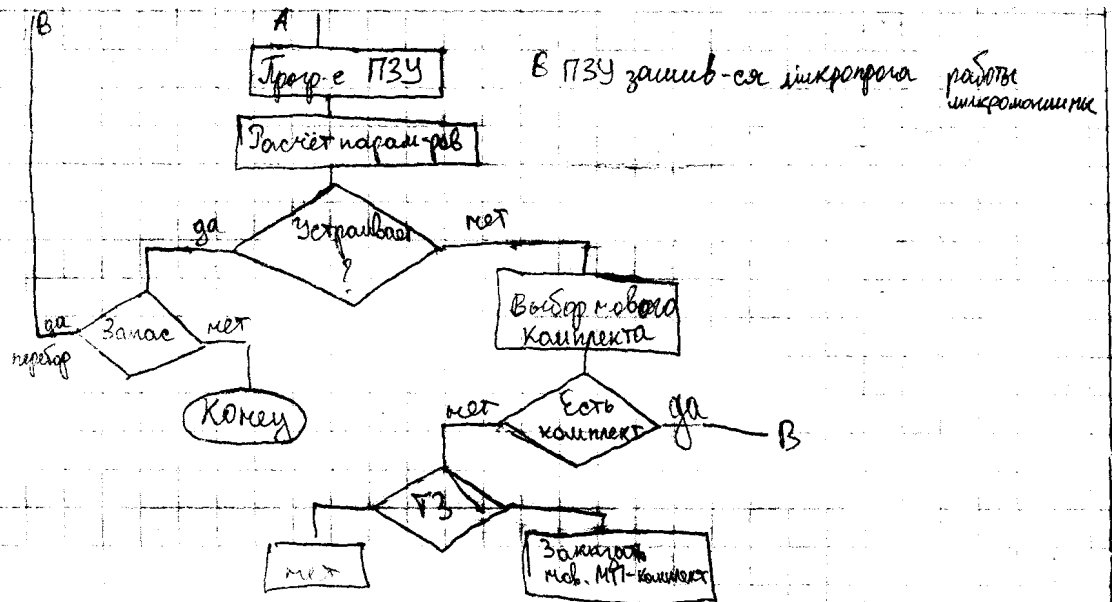 В
А
Прогр-е ПЗУ
В ПЗУ зашив-ся микропрога работы
микромашины
Расчёт парам-ров
Устраивает
?
да
нет
Выбор нового
комплекта
да
перебор
Запас
нет
Конец
Есть
комплект
нет
да
В
ТЗ
нет
Заказать
нов. МП-комплект